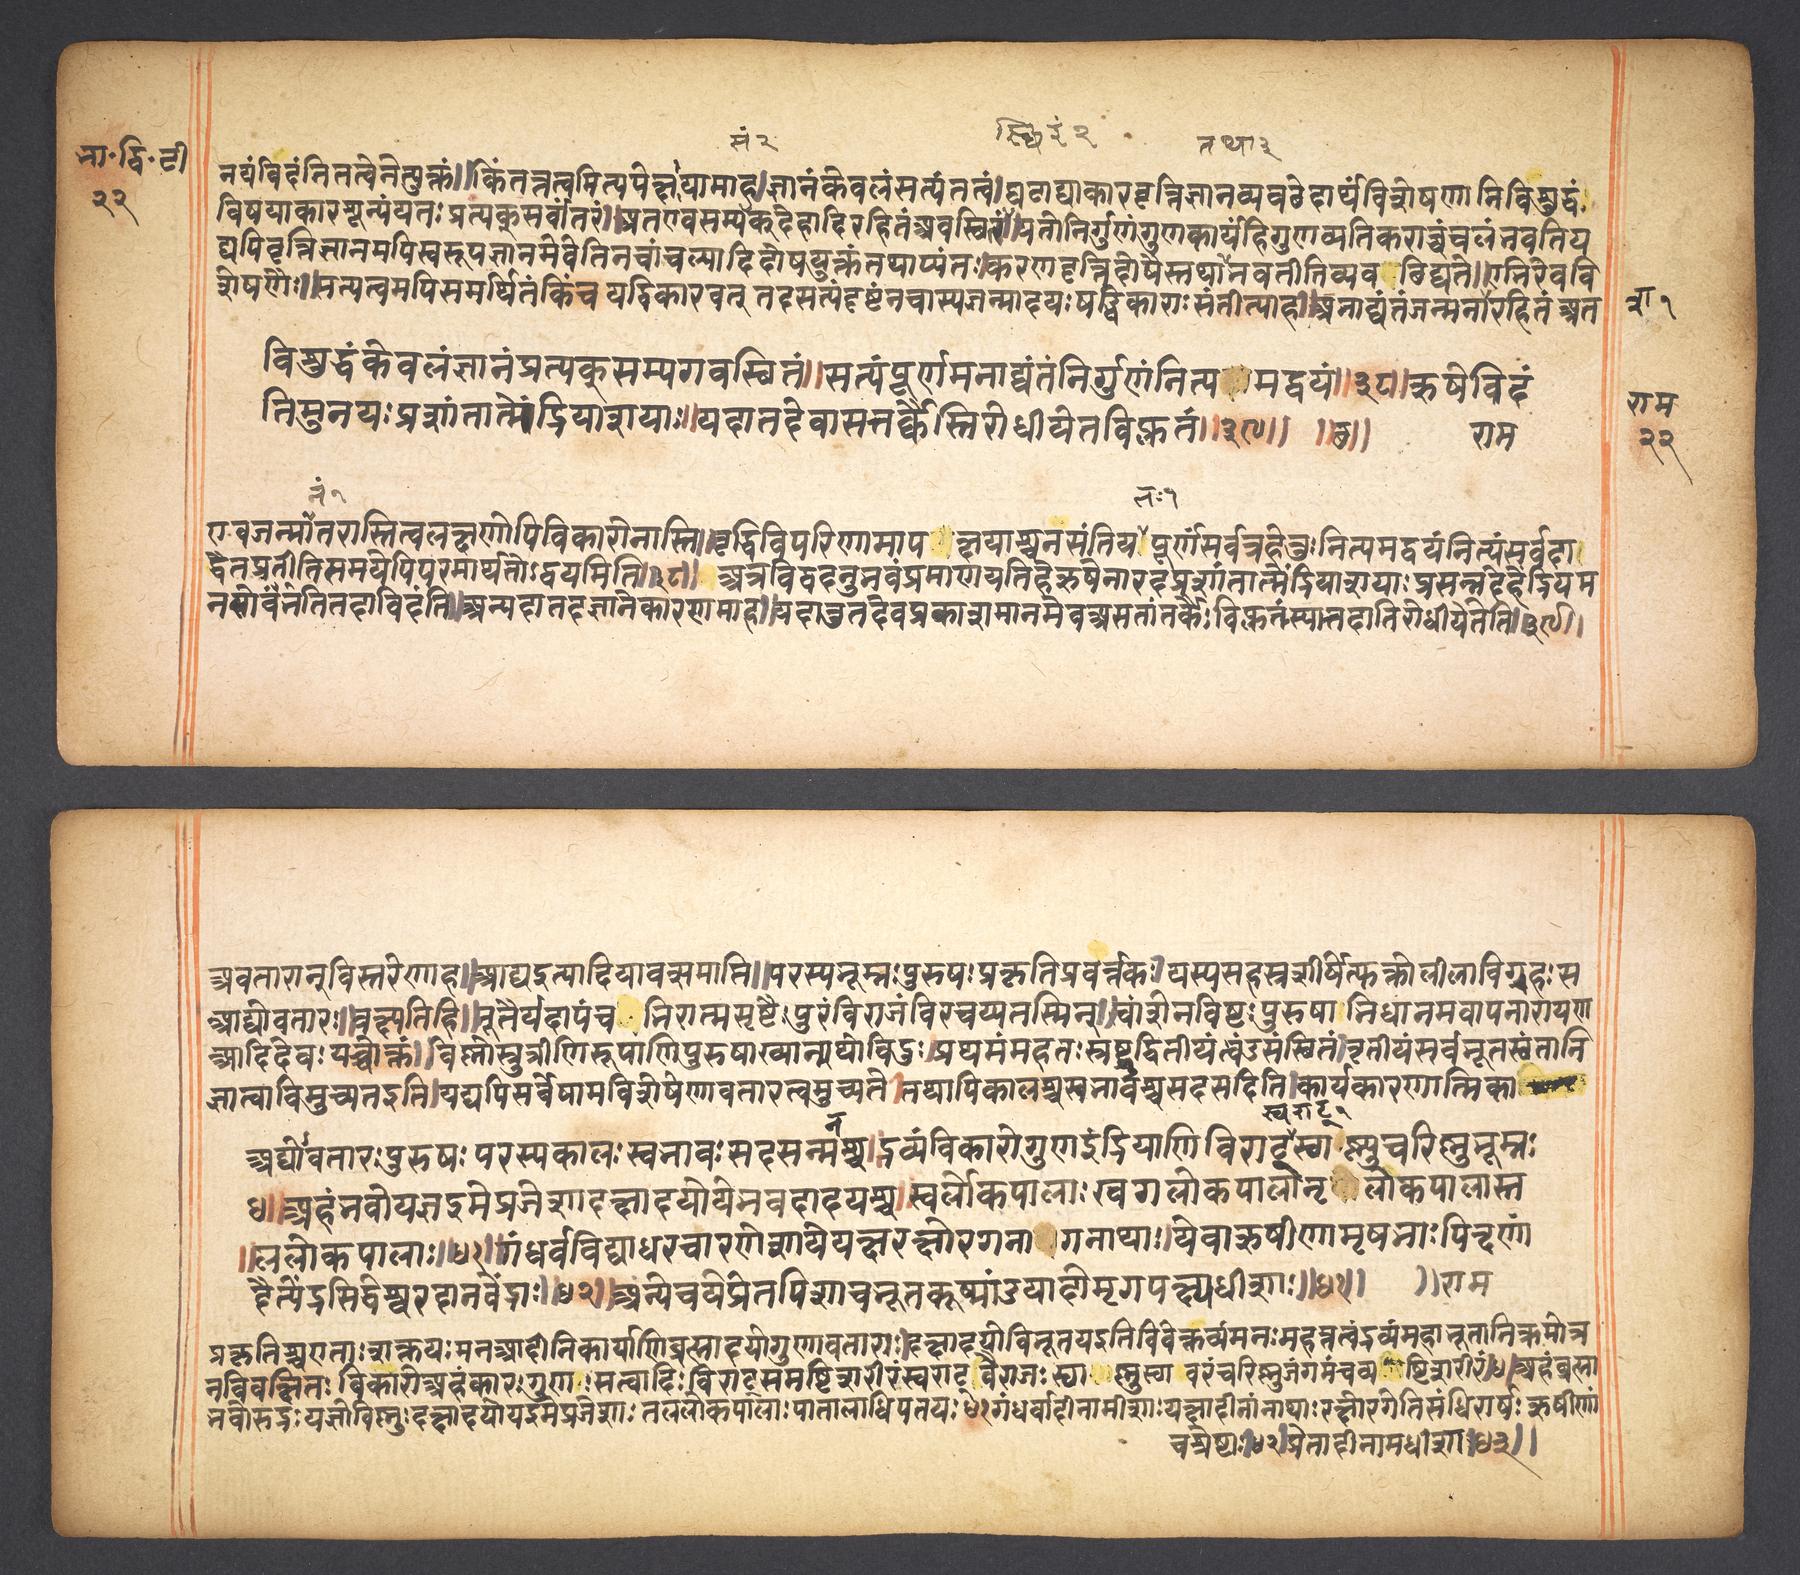 सं२ स्थिरं२ तथा३
भा॰द्वि॰टी
२२
नयंविदंतितत्वेनेत्युक्तं।।किंतत्तत्वमित्यपेक्षायामाह।ज्ञानंकेवलंसत्यंतत्वं।घटाद्याकारवृत्तिज्ञानव्यवछेदार्थंविशेषणानिविशुद्धं
विषयाकारशून्यंयतः प्रत्यक्सर्वांतरं।।अतएवसम्यक्देहादिरहितंअवस्थितं।।यतोनिर्गुणंगुणकार्यंहिगुणव्यतिकराच्चंचलंभवतिय
द्यपिवृत्तिज्ञानमपिस्वरूपज्ञानमेवेतिनचांचल्यादिदोषयुक्तंतथाप्यंतःकरणवृत्तिदोषैस्तथाभवतीतिव्यव छिद्यते।।एभिरेववि
शेषणैः।।सत्यत्वमपिसमर्थितंकिंच यद्विकारवत् तदसत्यंदृष्टंनचास्यजन्मादयः षड्विकाराः संतीत्याह।।अनाद्यंतंजन्मनारहितं अत
शा१
विशुद्धंकेवलंज्ञानंप्रत्यक्सम्यगवस्थितं।।सत्यंपूर्णमनाद्यंतंनिर्गुणंनित्य मद्वयं।।३८।।ऋषेविदं
तिमुनयः प्रशांतात्मेंद्रियाशयाः।।यदातदेवासत्तर्कैस्तिरोधीयेतविप्लुतं।।३९।। ।।छ।। राम
राम
२२
नं१ तः१
एवजन्मांतरास्तित्वलक्षणोपिविकारोनास्ति।।वृद्धिविपरिणामाप क्षयाश्चनसंतिय पूर्णंसर्वत्रहेतुः नित्यमद्वयंनित्यंसर्वदा
द्वैतप्रतीतिसमयेपिपरमार्थतोऽद्वयमिति।।३८।। अत्रविद्वदनुभवंप्रमाणयतिहेऋषेनारदप्रशांतात्मेंद्रियाशयाः प्रसन्नदेहेंद्रियम
नसोवंनंतितदाविदंति।।अन्यदातदज्ञानेकारणमाह।।यदातुतदेवप्रकाशमानमेवअसतांतर्कैः विप्लुतंस्यात्तदातिरोधीयेतेति।।३९।।
अवतारान्विस्तरेणाह।।आद्यइत्यादियावत्समाप्ति।।परस्यभूम्नः पुरुषः प्रकृतिप्रवर्त्तकः।यस्यसहस्रशीर्षेत्युक्तोलीलाविग्रहः स
आद्योवतारः।।वक्ष्यतिहि।।भूतैर्यदापंच भिरात्मसृष्टैः पुरंविराजंविरचय्यतस्मिन्।।स्वांशेनविष्टः पुरुषा भिधानमवापनारायण
आदिदेवः यच्चोक्तं।।विष्णोस्तुत्रीणिरूपाणिपुरुषाख्यान्यथोविदुः।प्रथमंमहतः स्रष्टृद्वितीयंत्वंडसंस्थितं।तृतीयंसर्वभूतस्थंतानि
ज्ञात्वाविमुच्यतइति।यद्यपिसर्वेषामविशेषेणावतारत्वमुच्यते।तथापिकालश्चस्वभावश्चसदसदिति।कार्यकारणात्मिका
न स्वराट्१
अद्योवतारः पुरुषः परस्यकालः स्वभावः सदसन्मश्च।द्रव्यंविकारोगुणइंद्रियाणि विराट् स्था स्नुचरिष्णुभूम्नः
४।।अहंभवोयज्ञइमेप्रजेशादक्षादयोयेभवदादयश्च।स्वर्लोकपालाः खगलोकपालानृ लोकपालास्त
।।ललोकपालाः।।४१।।गंधर्वविद्याधरचारणेशायेयक्षरक्षोरगना गनाथाः।येवाऋषीणामृषभाः पितृणां
दैत्येंद्रसिद्धेश्वरदानवेंद्राः।।४२।।अन्येचयेप्रेतपिशाचभूतकूष्मांडयादोमृगपक्ष्यधीशाः।।४३।। ।।राम
प्रकृतिश्चएताः शक्तयः मनआदीनिकार्याणिब्रह्मादयोगुणावताराः।दक्षादयोविभूतयइतिविवेक्तव्यंमनः महत्तत्वंद्रव्यंमहाभूतानिक्रमोत्र
नविवक्षितः विकारोअहंकारः गुणा सत्वादिः विराट्समष्टिशरीरंस्वराट् वैराजः स्था स्नुस्था वरंचरिष्णुजंगमंचव्य ष्टिशरीरं।४।अहंब्रह्मा
भवोरुद्रः यज्ञोविष्णुः दक्षादयोयइमेप्रजेशाः तललोकपालाः पातालाधिपतयः ४१गंधर्वादीनामीशाः यक्षादीनांनाथाः रक्षोरगेतिसंधिरार्षः ऋषीणां
चश्रेष्ठाः।।४२।प्रेतादीनामधीशा।।४३।।